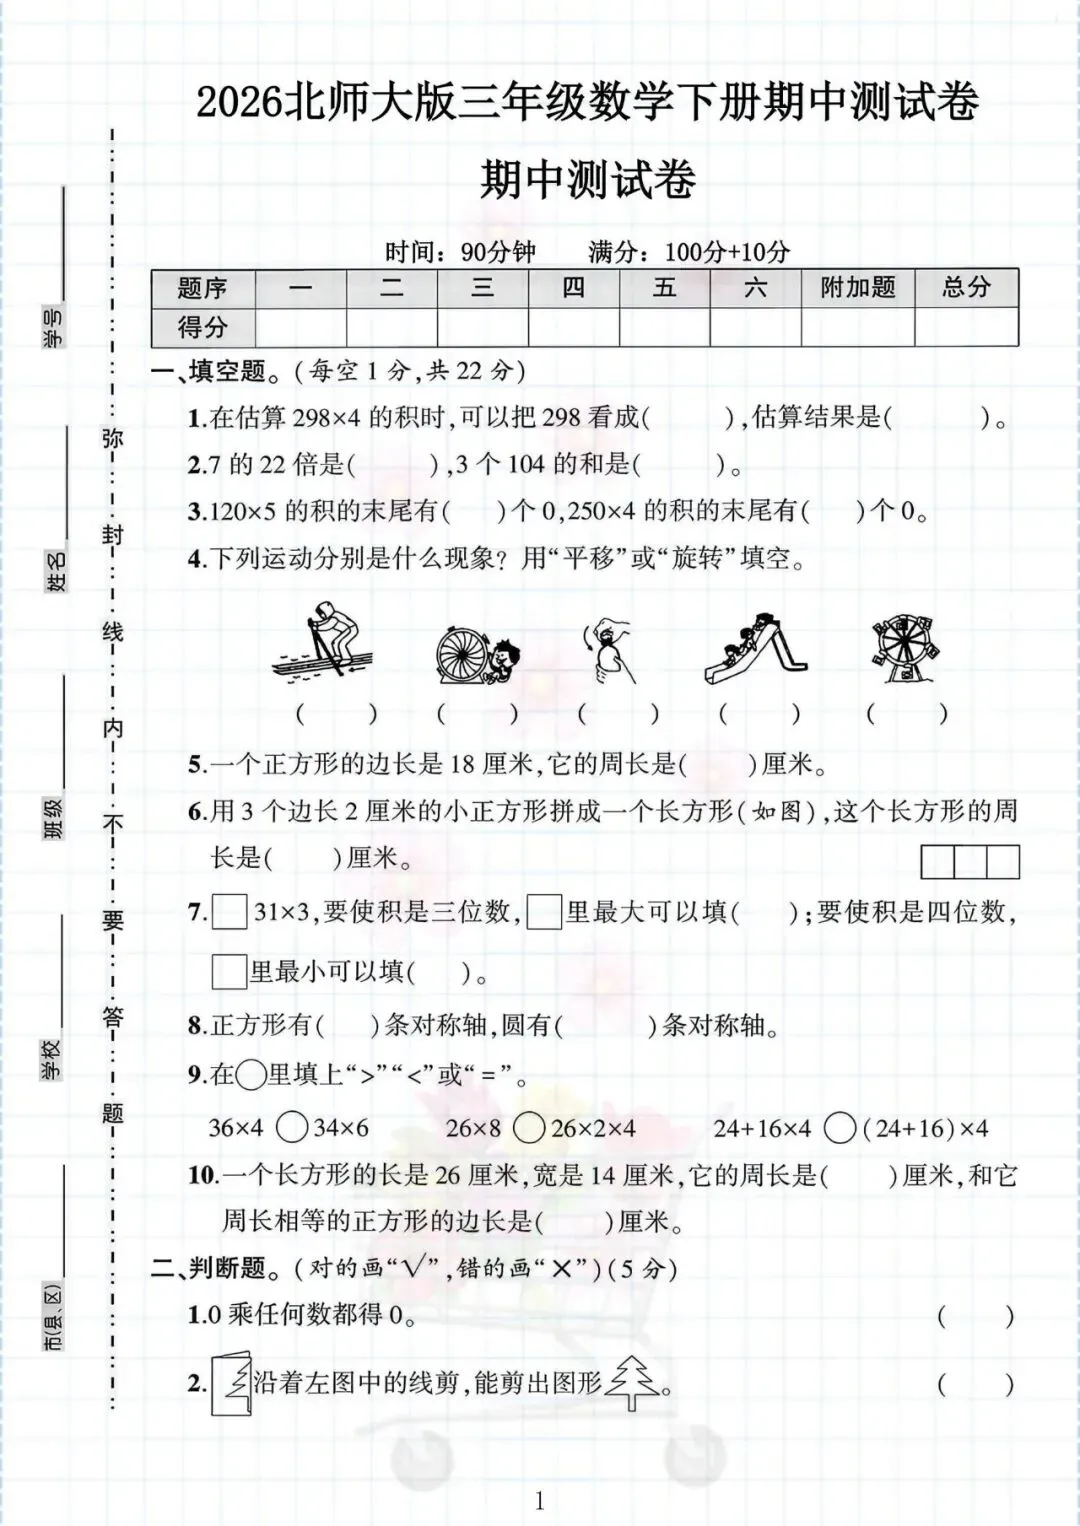 2026北师大版三年级数学下册期中测试卷
期中测试卷
时间：90分钟 满分：100分+10分
题序 一 二 三 四 五 六 附加题 总分
得分
一、填空题。(每空1分,共22分)
1.在估算298×4的积时,可以把298看成( ),估算结果是( )。
2.7的22倍是( ),3个104的和是( )。
3.120×5的积的末尾有( )个0,250×4的积的末尾有( )个0。
4.下列运动分别是什么现象？用“平移”或“旋转”填空。
( ) ( ) ( ) ( ) ( )
5.一个正方形的边长是18厘米,它的周长是( )厘米。
6.用3个边长2厘米的小正方形拼成一个长方形(如图),这个长方形的周
长是( )厘米。
7.□31×3,要使积是三位数,□里最大可以填( );要使积是四位数,
□里最小可以填( )。
8.正方形有( )条对称轴,圆有( )条对称轴。
9.在○里填上“>”“<”或“=”。
36×4○34×6 26×8○26×2×4 24+16×4○(24+16)×4
10.一个长方形的长是26厘米,宽是14厘米,它的周长是( )厘米,和它
周长相等的正方形的边长是( )厘米。
二、判断题。(对的画“√”,错的画“×”)(5分)
1.0乘任何数都得0。 ( )
2.沿着左图中的线剪,能剪出图形。 ( )
1
学号
姓名
班级
学校
市(县、区)
弥封线内不要答题